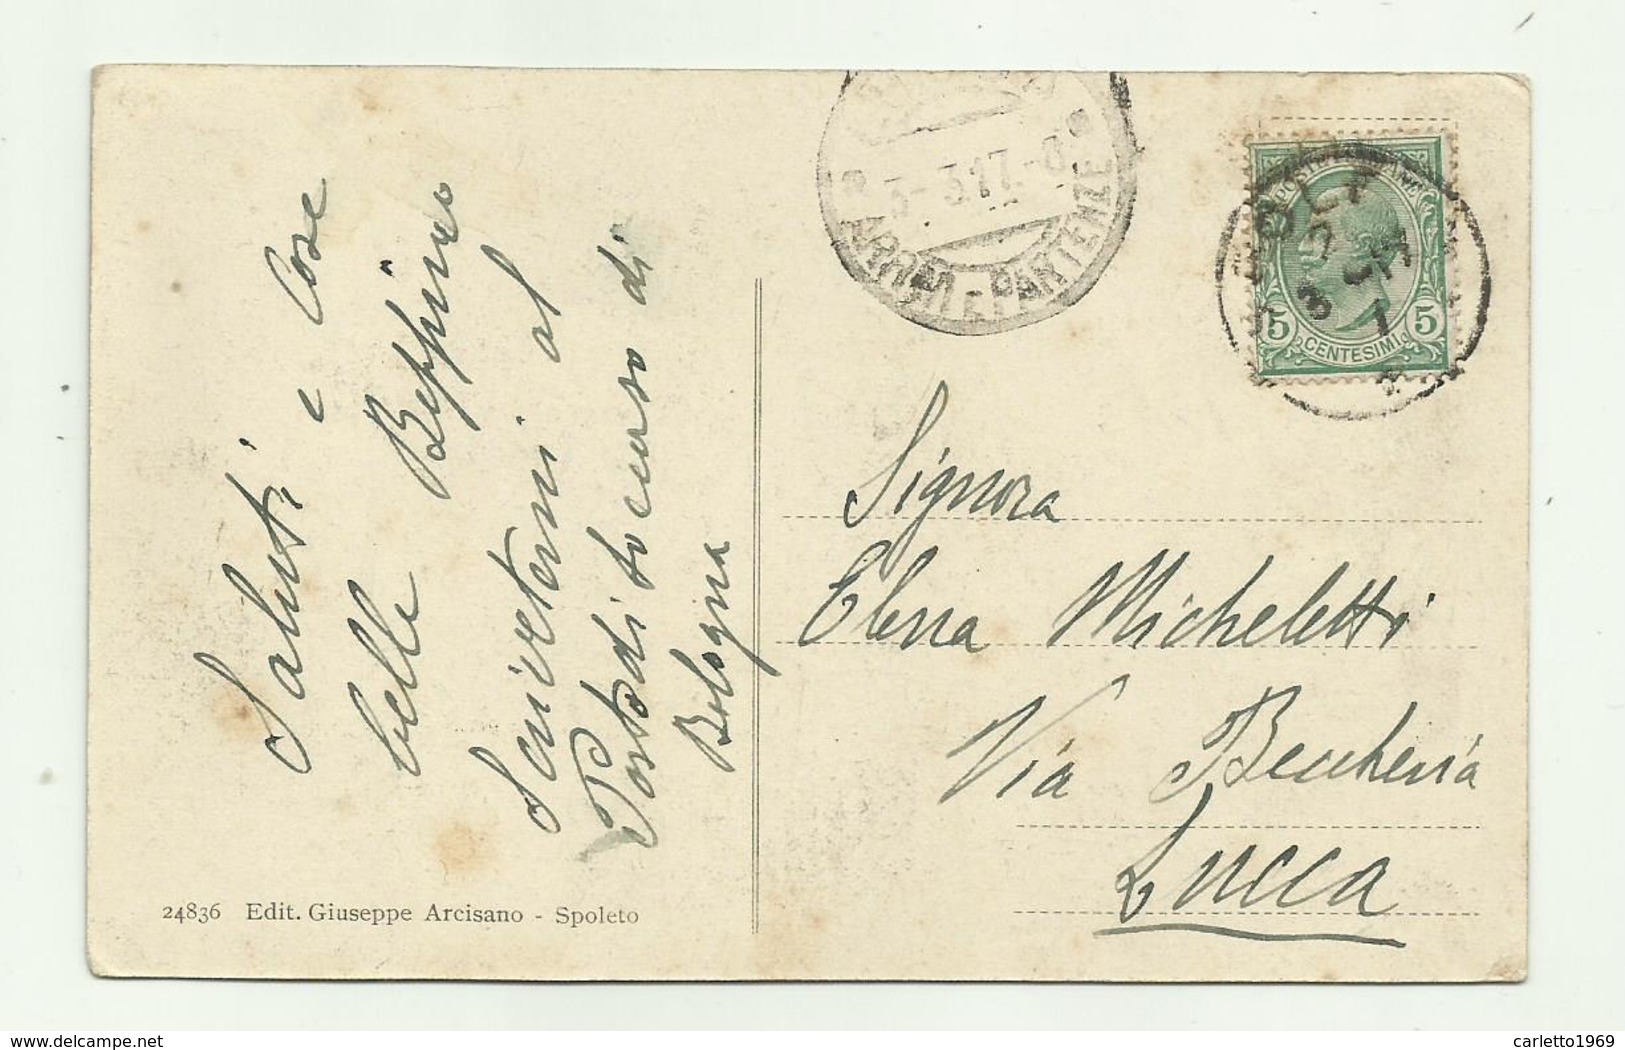 Saluti e cose
belle Beppino
Scrivetemi al
Posto di
Bologna
24836 Edit. Giuseppe Arcisano - Spoleto
ARRIVI E PARTENZE
3-3.17.-8
POSTE ITALIANE
5 CENTESIMI 5
Signora
Elena Micheletti
Via Beccheria
Lucca
delcampe.net
carletto1969